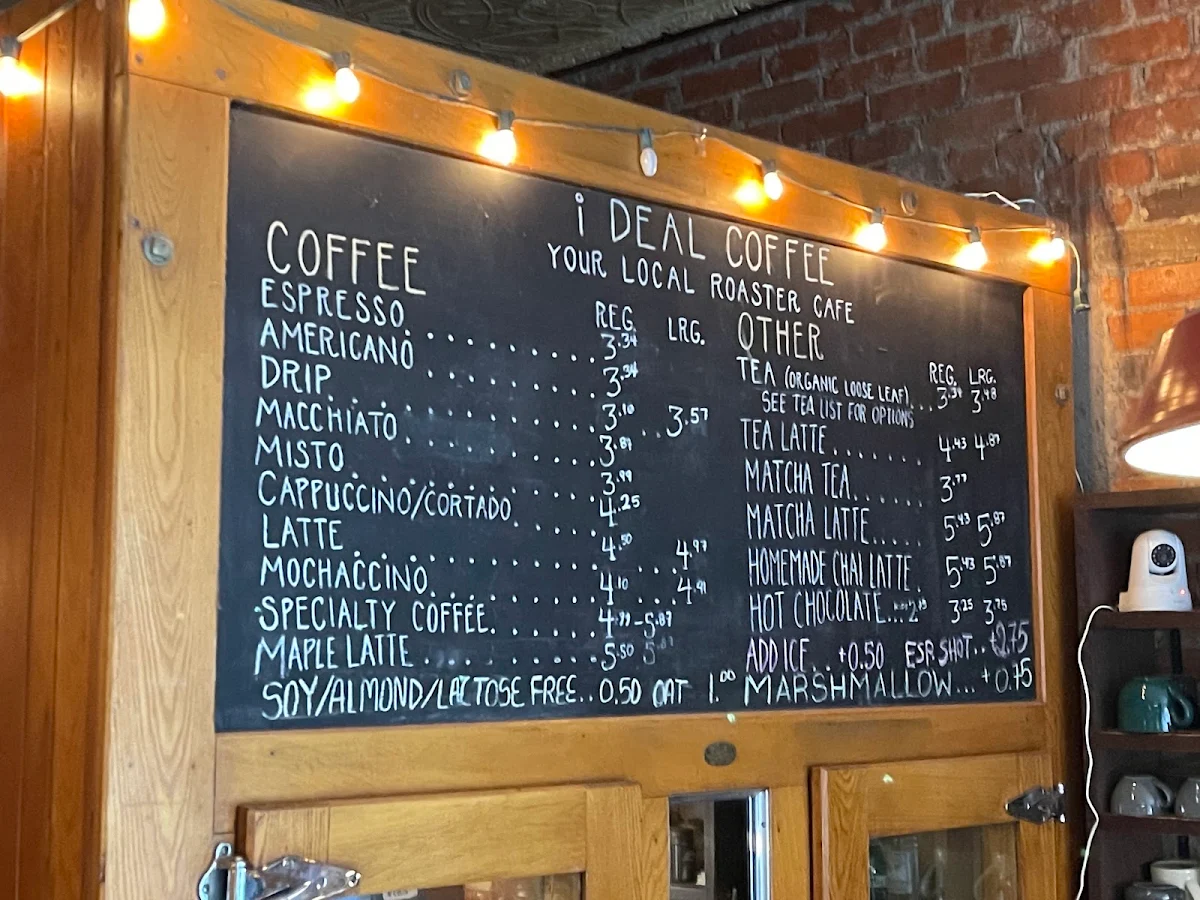 i DEAL COFFEE
YOUR LOCAL ROASTER CAFE
COFFEE
REG. LRG.
ESPRESSO.......... 3.34
AMERICANO......... 3.34
DRIP............. 3.10 ... 3.57
MACCHIATO......... 3.87
MISTO............. 3.99
CAPPUCCINO/CORTADO..... 4.25
LATTE............. 4.50 ... 4.97
MOCHACCINO......... 4.10 ... 4.91
SPECIALTY COFFEE...... 4.99-5.87
MAPLE LATTE......... 5.50
SOY/ALMOND/LACTOSE FREE.. 0.50 OAT 1.00
OTHER
REG. LRG.
TEA (ORGANIC LOOSE LEAF)... 3.34 3.48
SEE TEA LIST FOR OPTIONS
TEA LATTE....... 4.43 4.87
MATCHA TEA...... 3.77
MATCHA LATTE..... 5.43 5.87
HOMEMADE CHAI LATTE. 5.43 5.87
HOT CHOCOLATE... 3.25 3.75
ADD ICE.. +0.50 ESP. SHOT.. +2.75
MARSHMALLOW... +0.75